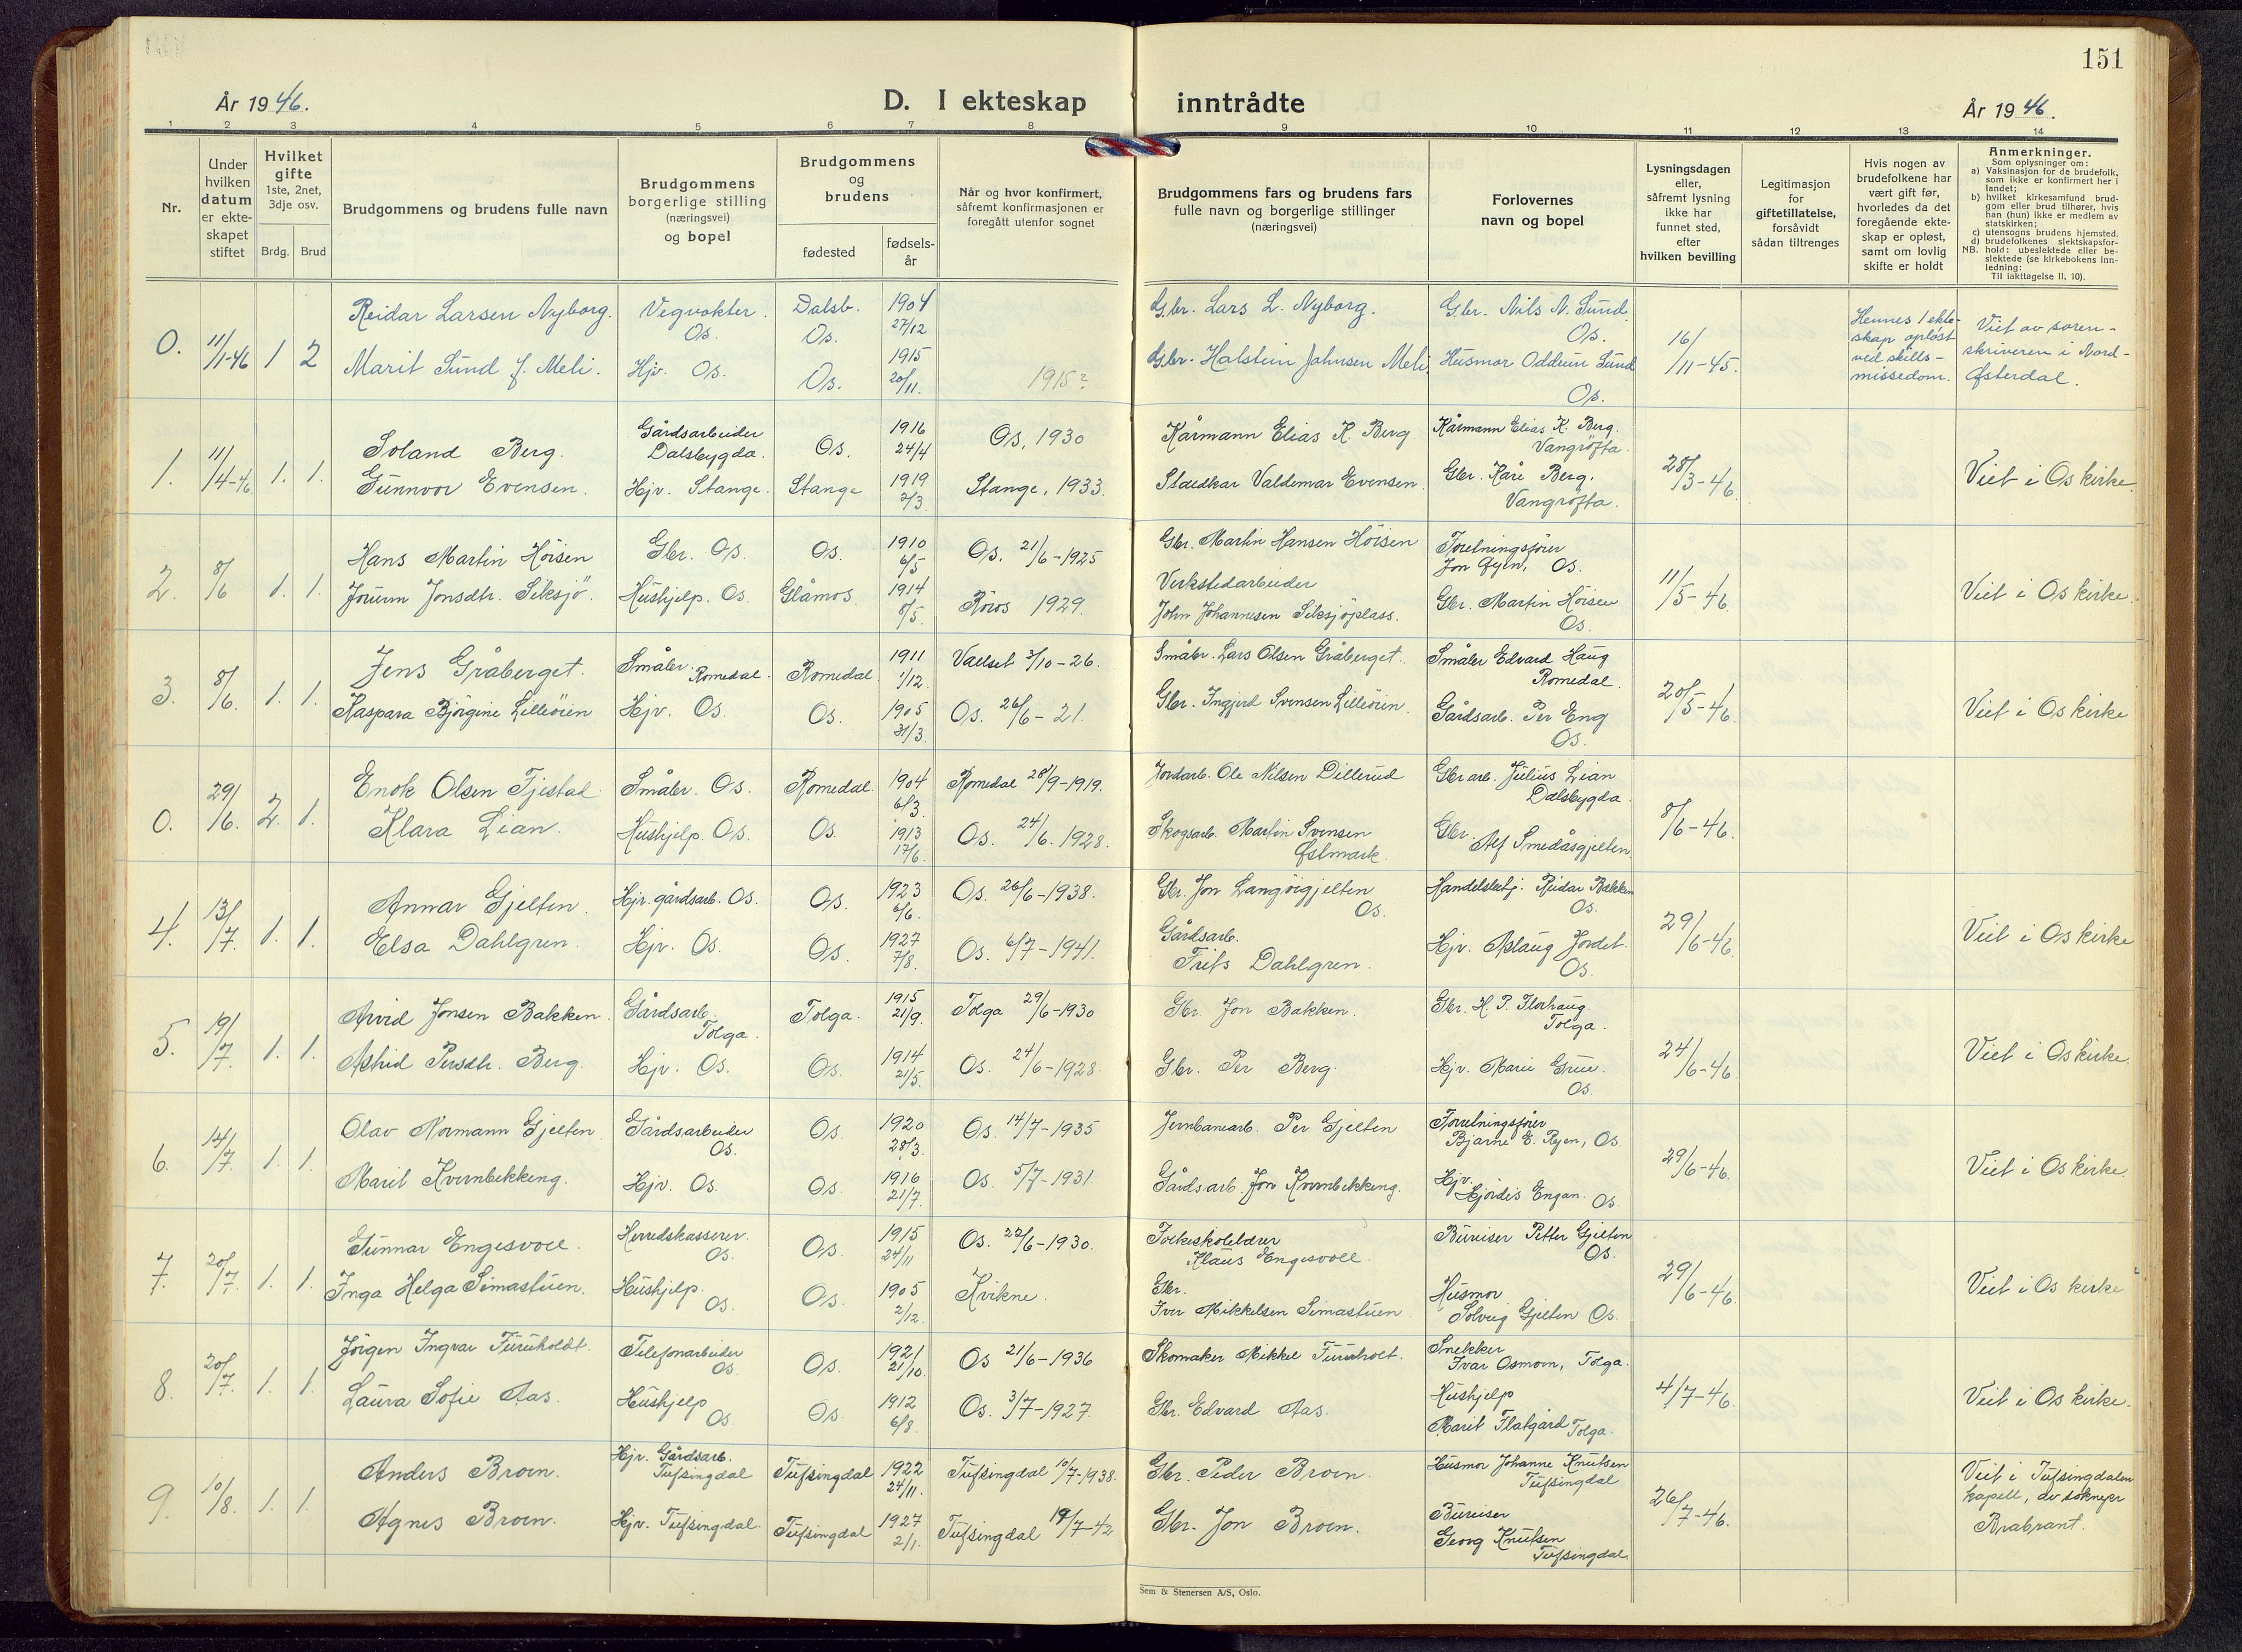 151
År 1946.
D. I ekteskap inntrådte
År 1946.
1 2 3 4 5 6 7 8 9 10 11 12 13 14
Nr.
Under hvilken datum er ekteskapet stiftet
Hvilket gifte 1ste, 2net, 3dje osv.
Brdg. Brud
Brudgommens og brudens fulle navn
Brudgommens borgerlige stilling (næringsvei) og bopel
Brudgommens og brudens
fødested
fødsels-år
Når og hvor konfirmert, såfremt konfirmasjonen er foregått utenfor sognet
Brudgommens fars og brudens fars fulle navn og borgerlige stillinger (næringsvei)
Forlovernes navn og bopel
Lysningsdagen eller, såfremt lysning ikke har funnet sted, efter hvilken bevilling
Legitimasjon for giftetillatelse, forsåvidt sådan tiltrenges
Hvis nogen av brudefolkene har vært gift før, hvorledes da det foregående ekteskap er opløst, samt om lovlig skifte er holdt
Anmerkninger.
Som oplysninger om:
a) Vaksinasjon for de brudefolk, som ikke er konfirmert her i landet;
b) hvilket kirkesamfund brudgom eller brud tilhører, hvis han (hun) ikke er medlem av statskirken;
c) utensogns brudens hjemsted.
d) brudefolkenes slektskapsforhold: ubeslektede eller beslektede (se kirkebokens innledning:
NB. Til iakttagelse II. 10).
0. 11/1-46 1 2
Reidar Larsen Nyborg. Vegvokter. Os. Dalsb. Os. 1904 27/12 Gbr. Lars L. Nyborg. Gbr. Nils N. Sund. Os.
Marit Sund f. Meli. Hjv. Os. Os. 1915 20/11. 1915? Gbr. Halstein Johnsen Meli. Husmor Oddrun Sund Os.
16/11-45. Hennes 1 ekteskap opløst ved skillsmissedom. Viet av sorenskriveren i Nord-Østerdal.
1. 11/4-46 1. 1.
Soland Berg. Gårdsarbeider Dalsbygda. Os. 1916 24/4 Os, 1930 Kårmann Elias K. Berg Kårmann Elias K. Berg. Vangrøfta.
Gunnvor Evensen. Hjv. Stange. Stange 1919 2/3 Stange, 1933. Valdemar Evensen. Gbr. Kåre Berg. Vangrøfta.
28/3-46 Viet i Os kirke.
2. 8/6 1. 1.
Hans Martin Höisen Gbr. Os. Os. 1910 6/5 Os. 21/6-1925 Gbr. Martin Hansen Höisen Foretningsfører Jon Øyen, Os.
Jorunn Jonsdtr. Seksjö. Hushjelp. Os. Glåmos. 1914 8/5. Röros 1929. Verkstedarbeider John Johannesen Seksjöplass. Gbr. Martin Höisen Os.
11/5-46 Viet i Os kirke.
3. 8/6. 1. 1.
Jens Gråberget. Småbr. Romedal. Romedal 1911 1/12. Vallset 3/10-26. Småbr. Lars Olsen Gråberget. Småbr Edvard Haug Romedal.
Kaspara Bjørgine Lilleöien Hjv. Os. Os. 1905 31/3. Os. 26/6-21. Gbr. Ingjerd Svensen Lilleöien. Gårdsarb. Per Eng Os.
20/5-46 Viet i Os kirke
0. 29/6. 2. 1.
Enok Olsen Tjestad Småbr. Os. Romedal. 1904 6/3. Romedal 28/9-1919. Jordarb. Ole Nilsen Dillerud Gbr arb. Julius Lian Dalsbygda.
Klara Lian. Hushjelp. Os. Os. 1913 17/6. Os. 24/6. 1928. Skogsarb. Martin Svensen Østmark. Gbr. Alf Smedåsgjelten.
8/6-46.
4. 13/7. 1. 1.
Annar Gjelten. Hjv. gårdsarb. Os. Os. 1923 6/6. Os. 26/6-1938. Gbr. Jon Langöigjelten Os. Handelsbetj. Reidar Bakken Os.
Elsa Dahlgren. Hjv. Os. Os. 1927 7/8. Os. 6/7-1941. Gårdsarb. Frits Dahlgren. Hjv. Aslaug Jordet. Os.
29/6-46 Viet i Os kirke
5. 19/7. 1. 1.
Arvid Jonsen Bakken. Gårdsarb. Tolga. Tolga. 1915 21/9. Tolga 29/6-1930 Gbr. Jon Bakken. Gbr. H. P. Tolga.
Astrid Persdtr. Berg. Hjv. Os. Os. 1914 21/5. Os. 24/6-1928. Gbr. Per Berg. Hjv. Marie Grue. Os.
24/6-46 Viet i Os kirke
6. 14/7. 1. 1.
Olav Normann Gjelten Gårdsarbeider Os. Os. 1920 28/3. Os. 14/7-1935 Jernbanearb. Per Gjelten Forretningsfører Bjarne E. Ryen, Os.
Marit Kvernbekkeng. Hjv. Os. Os. 1916 21/7. Os. 5/7-1931. Gårdsarb. Jon Kvernbekkeng. Hjv. Hjördis Engan. Os.
29/6-46. Viet i Os kirke.
7. 20/7. 1. 1.
Gunnar Engesvoll. Herredskasserer. Os. Os. 1915 24/11 Os. 22/6-1930. Folkeskolelærer Klaus Engesvoll. Bureiser Petter Gjelten Os.
Inga Helga Simastuen. Hushjelp. Os. Os. 1905 2/12. Kvikne. Gbr. Iver Mikkelsen Simastuen Husmor Solveig Gjelten Os.
29/6-46. Viet i Os kirke
8. 20/7. 1. 1.
Jörgen Ingvar Furuholdt. Telefonarbeider Os. Os. 1921 21/10. Os 21/6-1936 Skomaker Mikkel Furuholt. Snekker Ivar Osmoen, Tolga.
Laura Sofie Aas. Hushjelp Os. Os. 1912 6/8. Os. 3/7-1927. Gbr. Edvard Aas. Hushjelp Marit Flatgård Tolga.
4/7-46. Viet i Os kirke.
9. 10/8. 1. 1.
Anders Broen. Hjv. Gårdsarb. Tufsingdal Tufsingdal 1922 24/11. Tufsingdal 10/7-1938. Gbr. Peder Broen. Husmor Johanne Knutsen Tufsingdal
Agnes Broen. Hjv. Tufsingdal. Tufsingdal 1927 2/1. Tufsingdal 19/7-42 Gbr. Jon Broen. Bureiser Georg Knutsen Tufsingdal.
26/7-46. Viet i Tufsingdalen kapell, av soknepr Brabrant.
Sem & Stenersen A/S, Oslo.